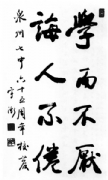 學而不厭
誨人不倦
泉州七中六十五周年校慶